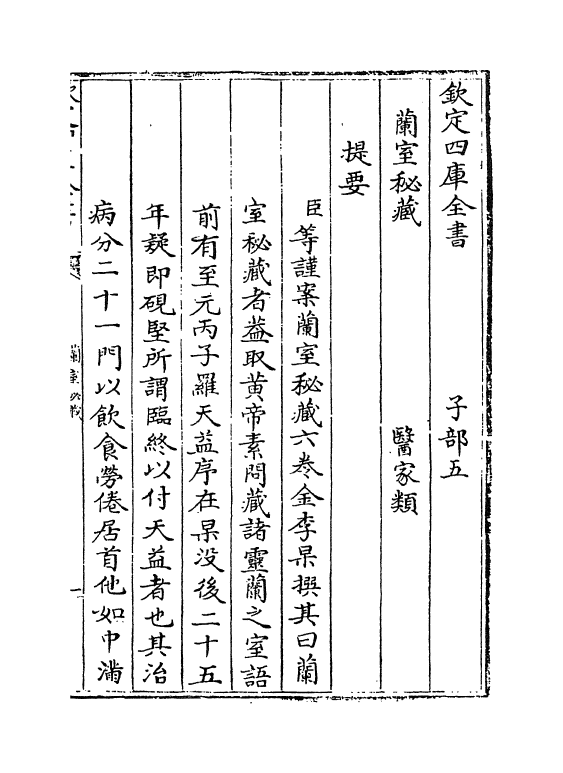 欽定四庫全書 子部五
蘭室秘藏 醫家類
提要
臣等謹案蘭室秘藏六卷金李杲撰其曰蘭
室秘藏者葢取黄帝素問藏諸靈蘭之室語
前有至元丙子羅天益序在杲没後二十五
年疑即硯堅所謂臨終以付天益者也其治
病分二十一門以飲食勞倦居首他如中滿
蘭室秘藏
一